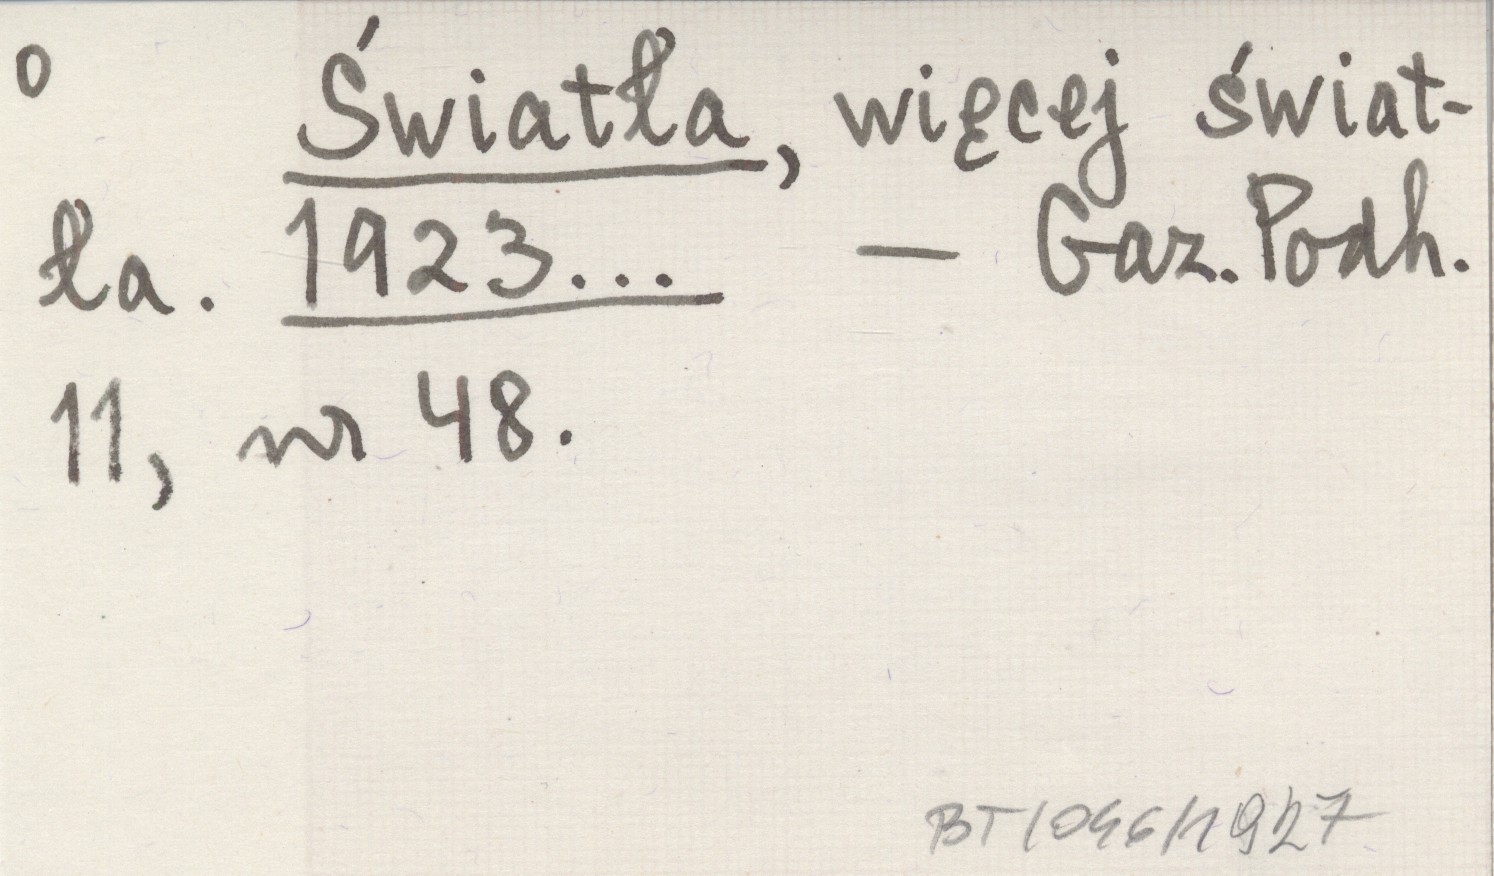 o Światła, więcej świat-
ła. 1923... — Gaz. Podh.
11, nr 48.
BT/046/1927